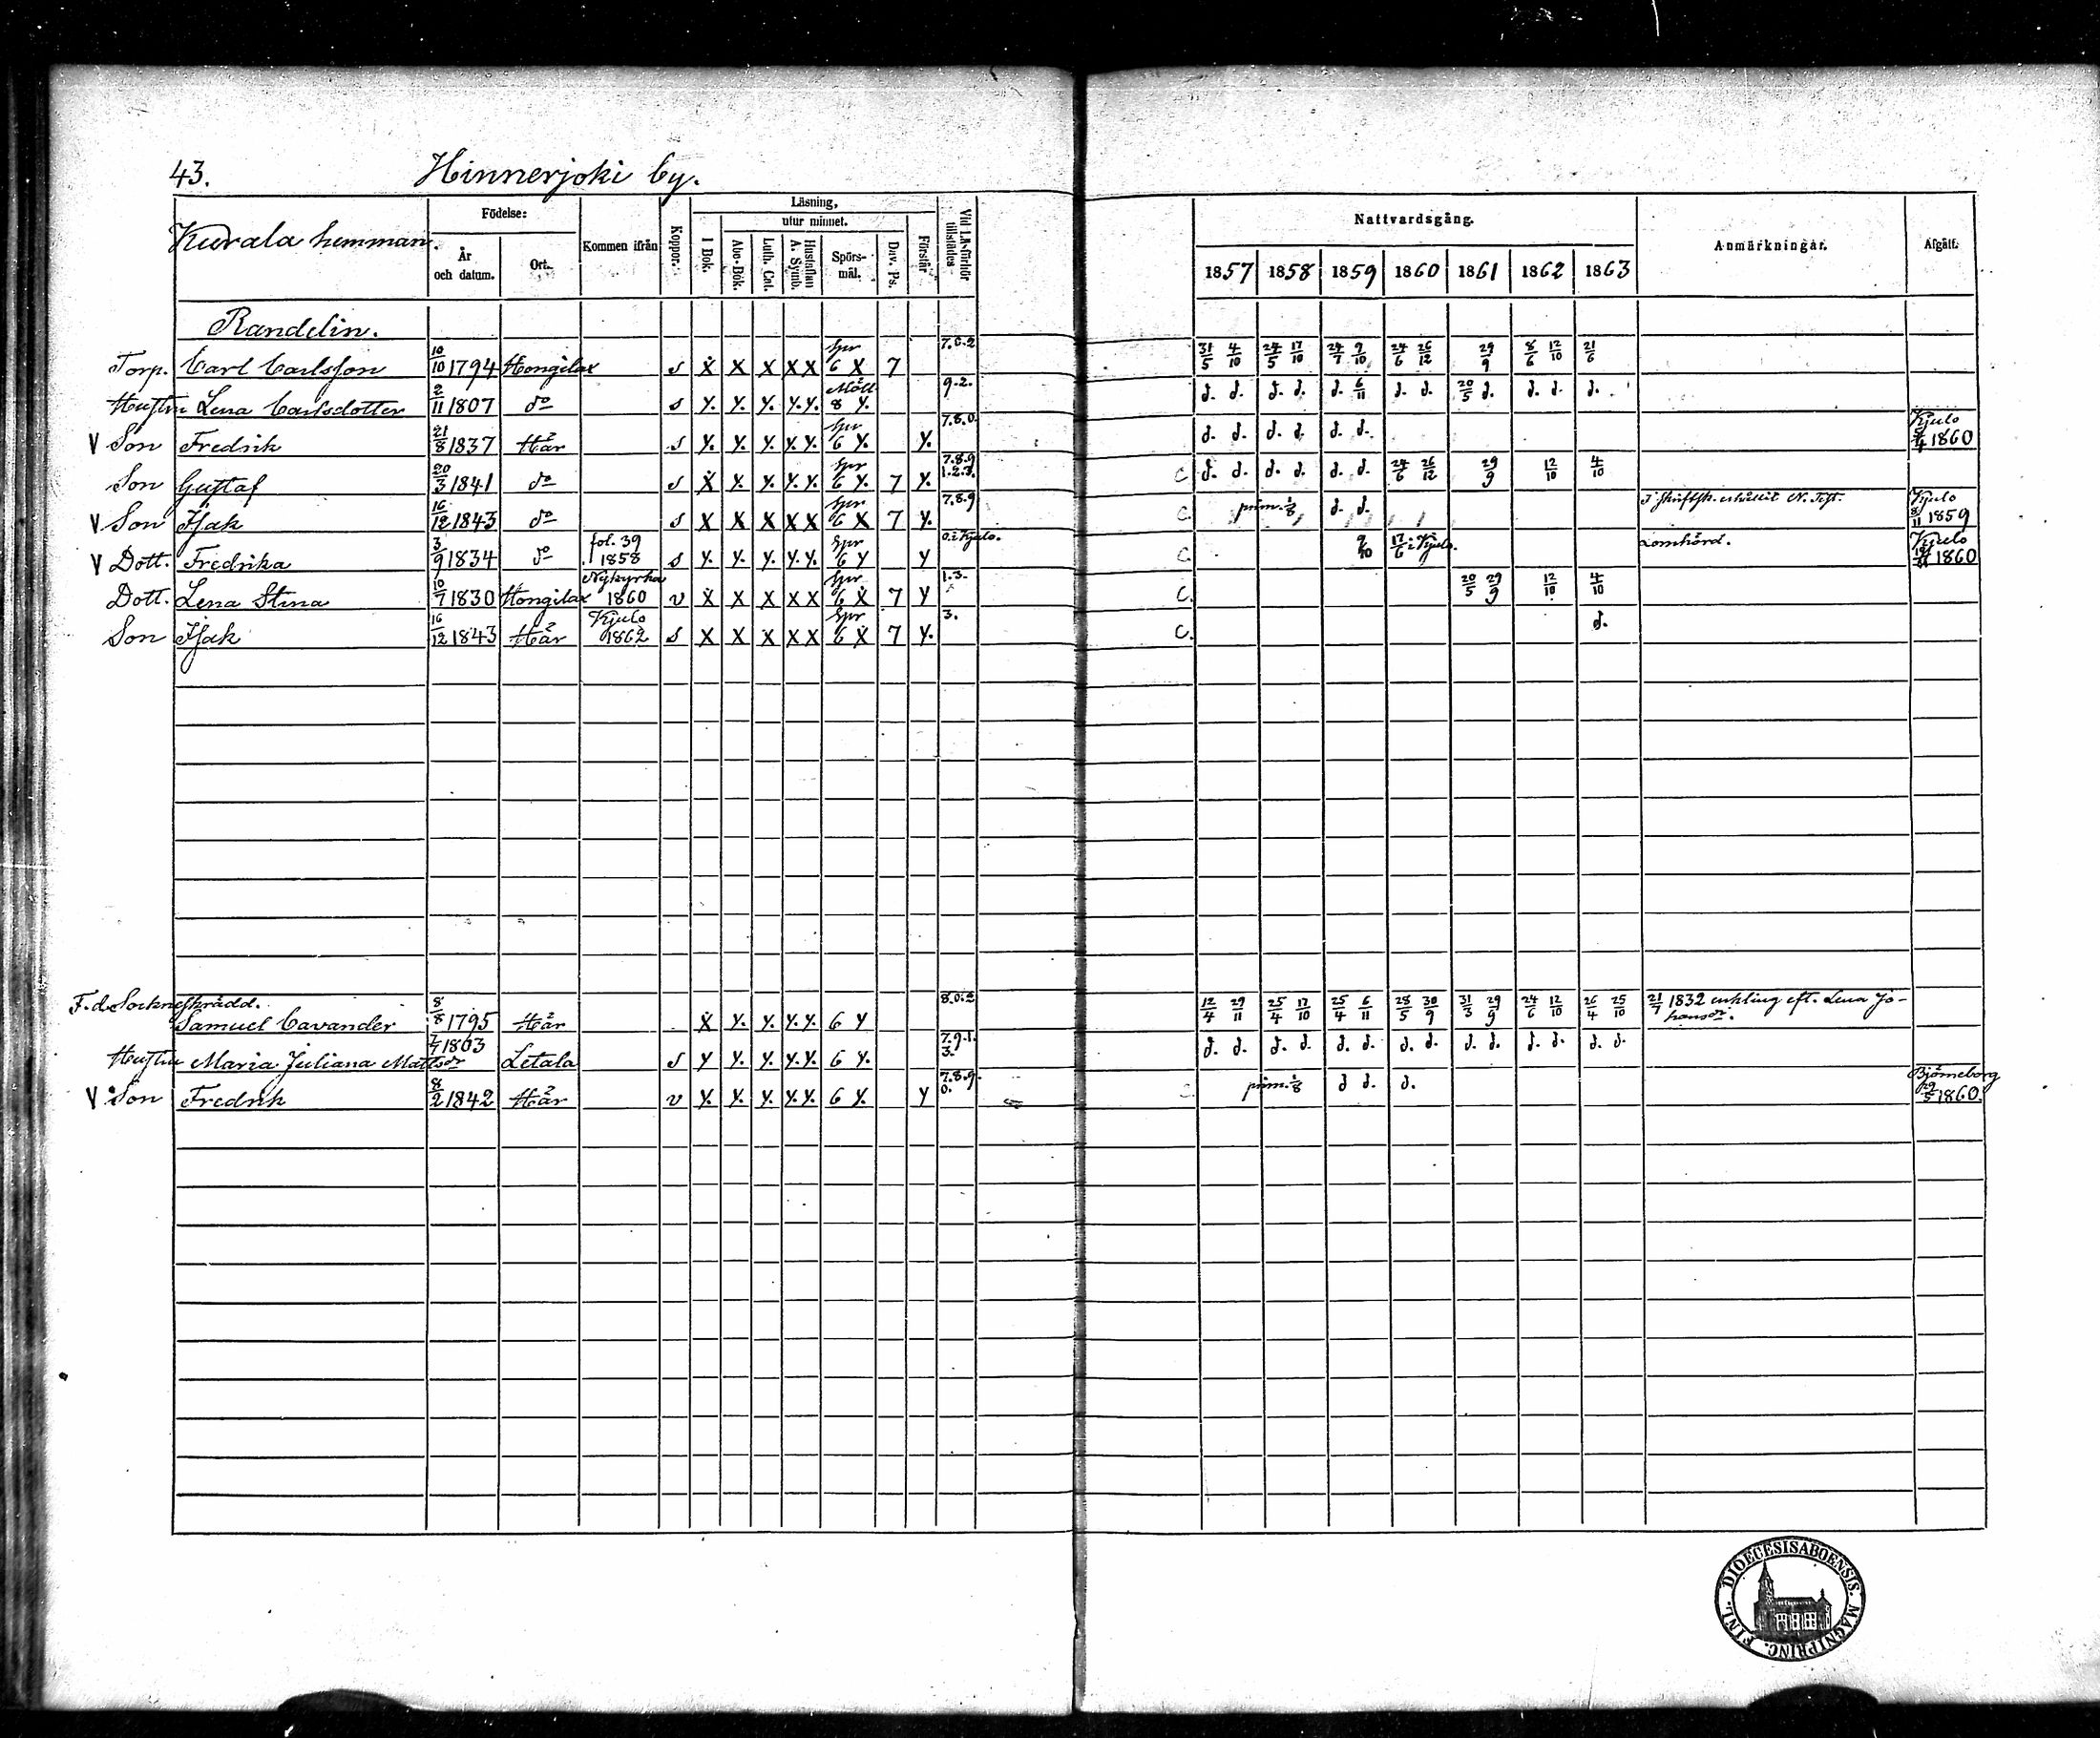 43. Hinnerjoki by.
Kuvala hemman.
Födelse:
År och datum.
Ort.
Kommen ifrån
Koppor.
Läsning,
I Bok.
utur minnet.
Abc-Bok.
Luth. Cat.
Hustaflan A. Symb.
Spörs-mål.
Dav. Ps.
Förstår
Vid Läsförhör tillstädes
Nattvardsgång.
1857 1858 1859 1860 1861 1862 1863
Anmärkningar.
Afgått.
Randelin.
Torp. Carl Carlsson 10/10 1794 Hongilax s X X X X X Spr 6 X 7 7.0.2 31/5 4/10 24/5 17/10 24/7 9/10 24/6 26/12 29/9 8/6 12/10 21/6
Hustru Lena Carlsdotter 2/11 1807 do s Y. Y. Y. Y. Y. Mått 8 Y. 9.2. d. d. d. d. d. 6/11 d. d. 20/5 d. d. d. d.
V Son Fredrik 21/8 1837 Här s Y. Y. Y. Y. Y. Spr 6 Y. Y. 7.8.0. d. d. d. d. d. d. Kjulo 1860
Son Gustaf 20/3 1841 do s X Y. Y. Y. Y. Spr 6 Y. 7 Y. 7.8.9 1.2.3. C d. d. d. d. d. d. 24/6 26/12 29/9 12/10 4/10
V Son Isak 16/12 1843 do s X X X X X Spr 6 X 7 Y. 7.8.9 C. prim. 1/8 d. d. I Skriftsk. erhållit N. Test. Kjulo 8/11 1859
V Dott. Fredrika 3/9 1834 do fol. 39 1858 s Y. Y. Y. Y. Y. Spr 6 Y Y 0. i Kjulo. C 9/10 17/6 i Kjulo. Lomhörd. Kjulo 1860
Dott. Lena Stina 10/7 1830 Hongilax Nykyrka 1860 v X X X X X Spr 6 X 7 Y 1.3. C. 20/5 29/9 12/10 4/10
Son Isak 16/12 1843 Här Kjulo 1862 s X X X X X Spr 6 X 7 Y. 3. C. d.
F. d. Sockneskrädd.
Samuel Cavander 8/8 1795 Här X Y. Y. Y. Y. 6 Y 8.0.2 12/4 29/11 25/4 17/10 25/4 6/11 28/5 30/9 31/3 29/9 24/6 12/10 26/4 25/10 21/7 1832 enkling eft. Lena Jo-
hansdr.
Hustru Maria Juliana Mattsdr 1803 Letala s Y Y. Y. Y. Y. 6 Y. 7.9.1. 3. d. d. d. d. d. d. d. d. d. d. d. d. d. d.
V Son Fredrik 8/2 1842 Här v Y. Y. Y. Y. Y. 6 Y. Y 7.8.9. 0. prim. 1/8 d d. d. Björneborg 29/5 1860.
FINL. DIOECESIS ABOENSIS. MAGNI PRINC.